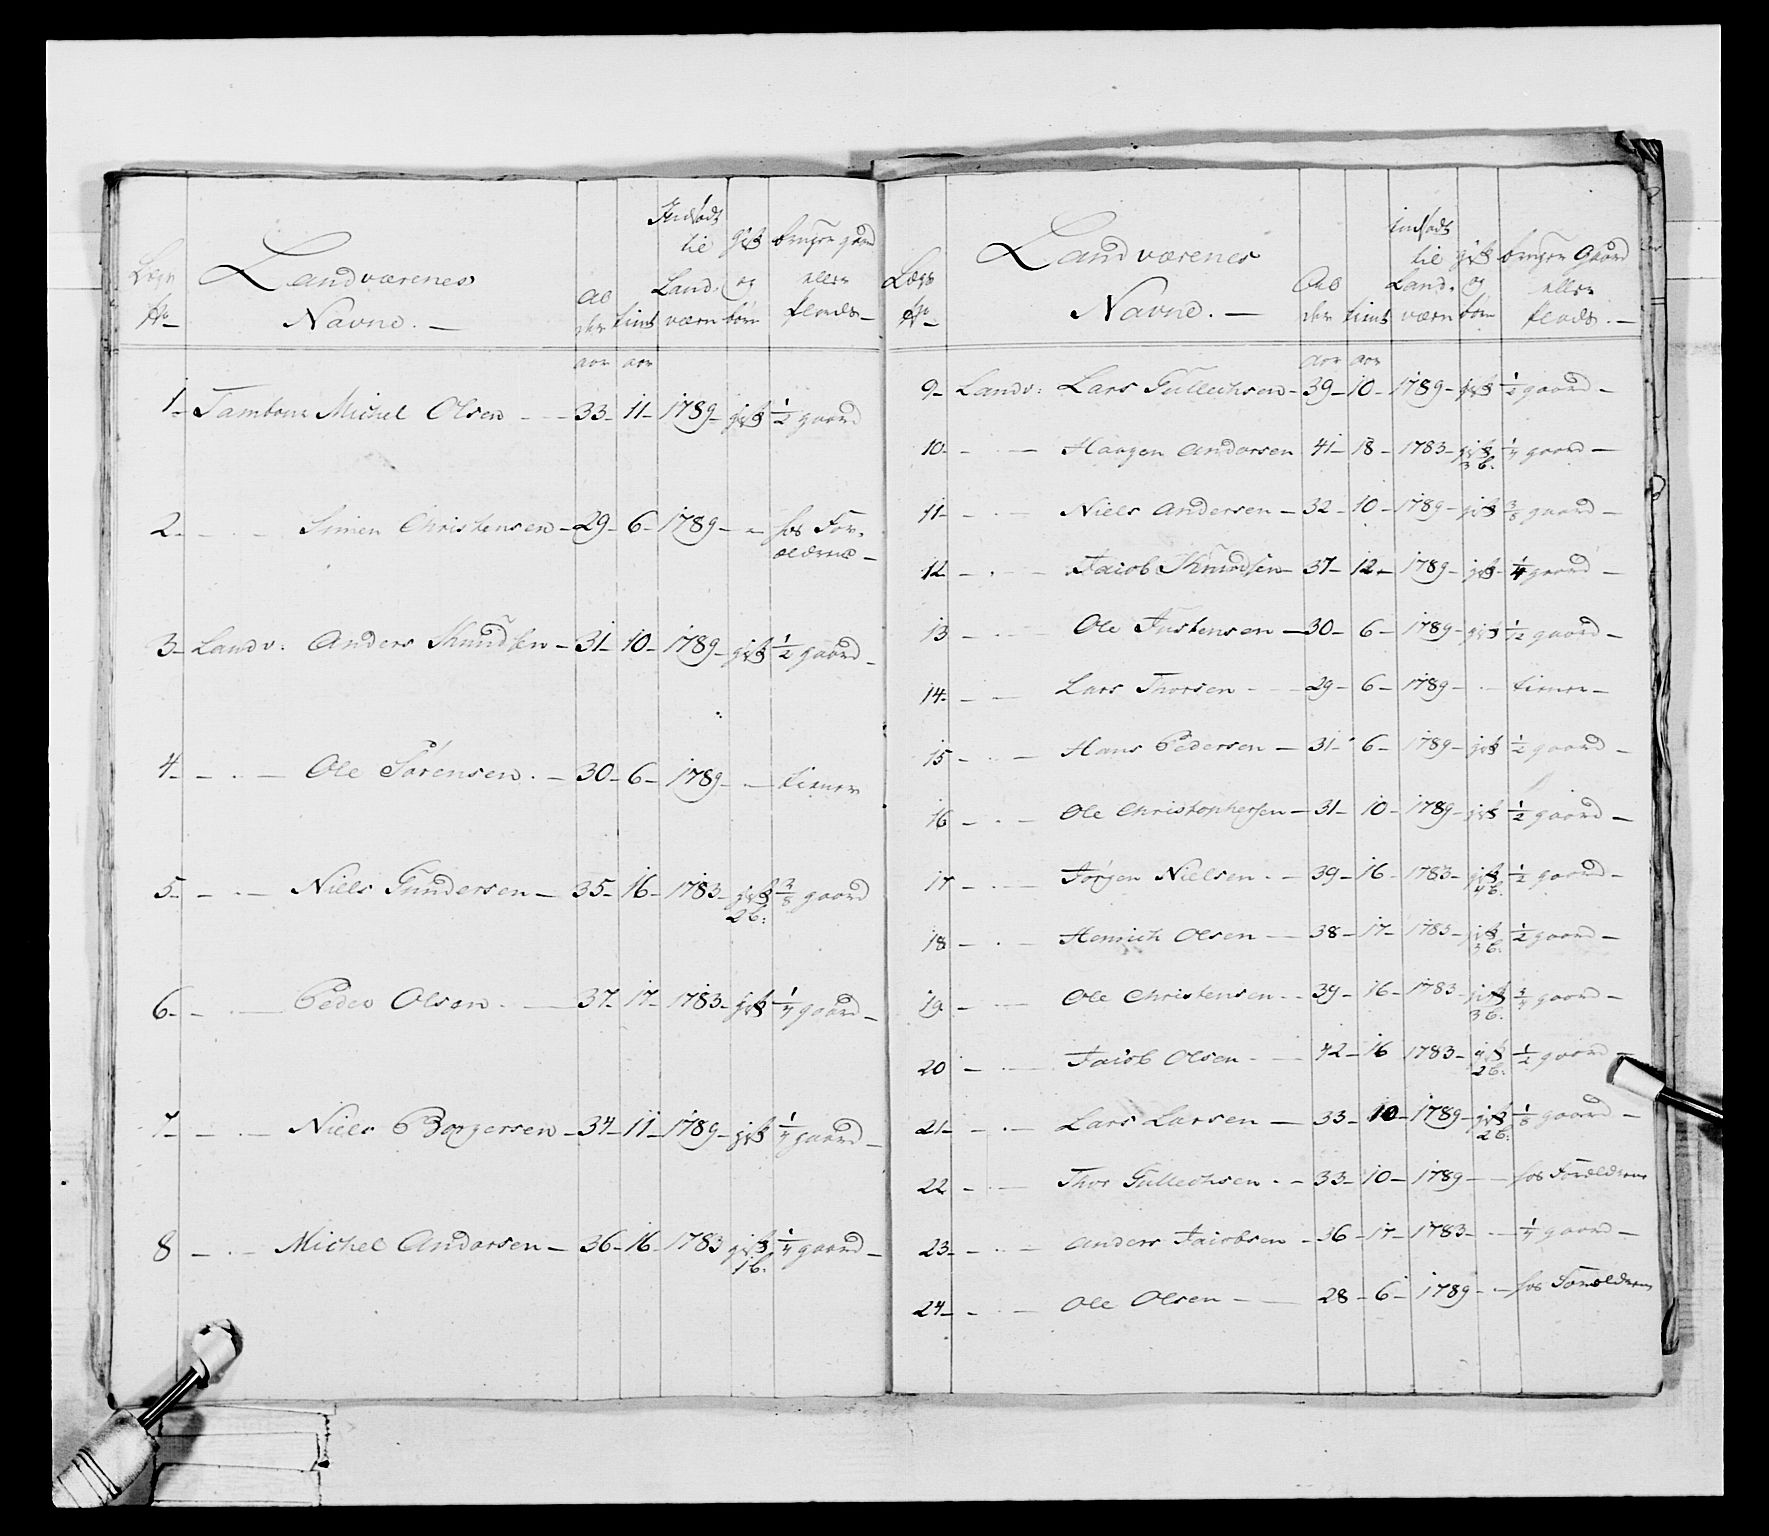 Lægs No
Landværenes Navne.
Al der
tient
Indsadt til Land- værn
gift og börn
bruger gaard eller plads
aar aar
1 Tambour Michel Olsen 33 11 1789 gift 1/2 gaard
2 Simen Christensen 29 6 1789 hos For- ældrene
3 Landv: Anders Knudsen 31 10 1789 gift 1/2 gaard
4 Ole Sörensen 30 6 1789 tiener
5 Niels Gundersen 35 16 1783 gift 2 b: 3/8 gaard
6 Peder Olsen 37 17 1783 gift 1/4 gaard
7 Niels Borgersen 34 11 1789 gift 1/4 gaard
8 Michel Andersen 36 16 1783 gift 1 b. 1/4 gaard
Lægs No
Landværenes Navne.
Al der
tient
indsadt til Land- værn
gift og börn
bruger Gaard eller plads.
aar aar
9 Landv: Lars Gullechsen 39 10 1789 gift 1/2 gaard
10 Haagen Andersen 41 18 1783 gift 3 b. 1/4 gaard
11 Niels Andersen 32 10 1789 gift 3/8 gaard
12 Jacob Knudsen 37 12 1789 gift 1/4 gaard
13 Ole Justensen 30 6 1789 gift 1/12 gaard
14 Lars Thorsen 29 6 1789 tiener
15 Hans Pedersen 31 6 1789 gift 1/2 gaard
16 Ole Christophersen 31 10 1789 gift 1/2 gaard
17 Jörgen Nielsen 39 16 1783 gift 4 b. 1/2 gaard
18 Henrich Olsen 38 17 1783 gift 3 b. 1/2 gaard
19 Ole Christensen 39 16 1783 gift 3 b. gaard
20 Jacob Olsen 42 16 1783 gift 2 b: 1/2 gaard
21 Lars Larsen 33 10 1789 gift 2 b: 1/8 gaard
22 Thor Gullechsen 33 10 1789 hos Forældrene
23 Anders Jacobsen 36 17 1783 1/4 gaard
24 Ole Olsen 28 6 1789 hos Forældrene